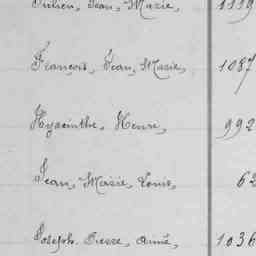 Julien, Jean, Marie, 1139
François, Jean, Marie, 1087
Hyacinthe, Henri, 992
Jean, Marie, Louis, 62
Joseph, Pierre, Aimé, 1036